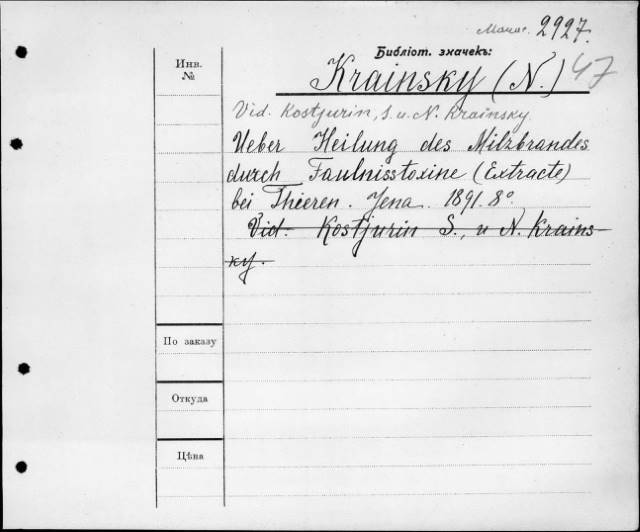 2927.
Инв.
№
Библіот. значекъ:
Krainsky (N.) 47
Vid. Kostjurin, S. u. N. Krainsky.
Ueber Heilung des Milzbrandes
durch Faulnisstoxine (Extracte)
bei Thieren. Jena. 1891. 8°
Vid. Kostjurin S., u N. Krains-
ky.
По заказу
Откуда
Цѣна